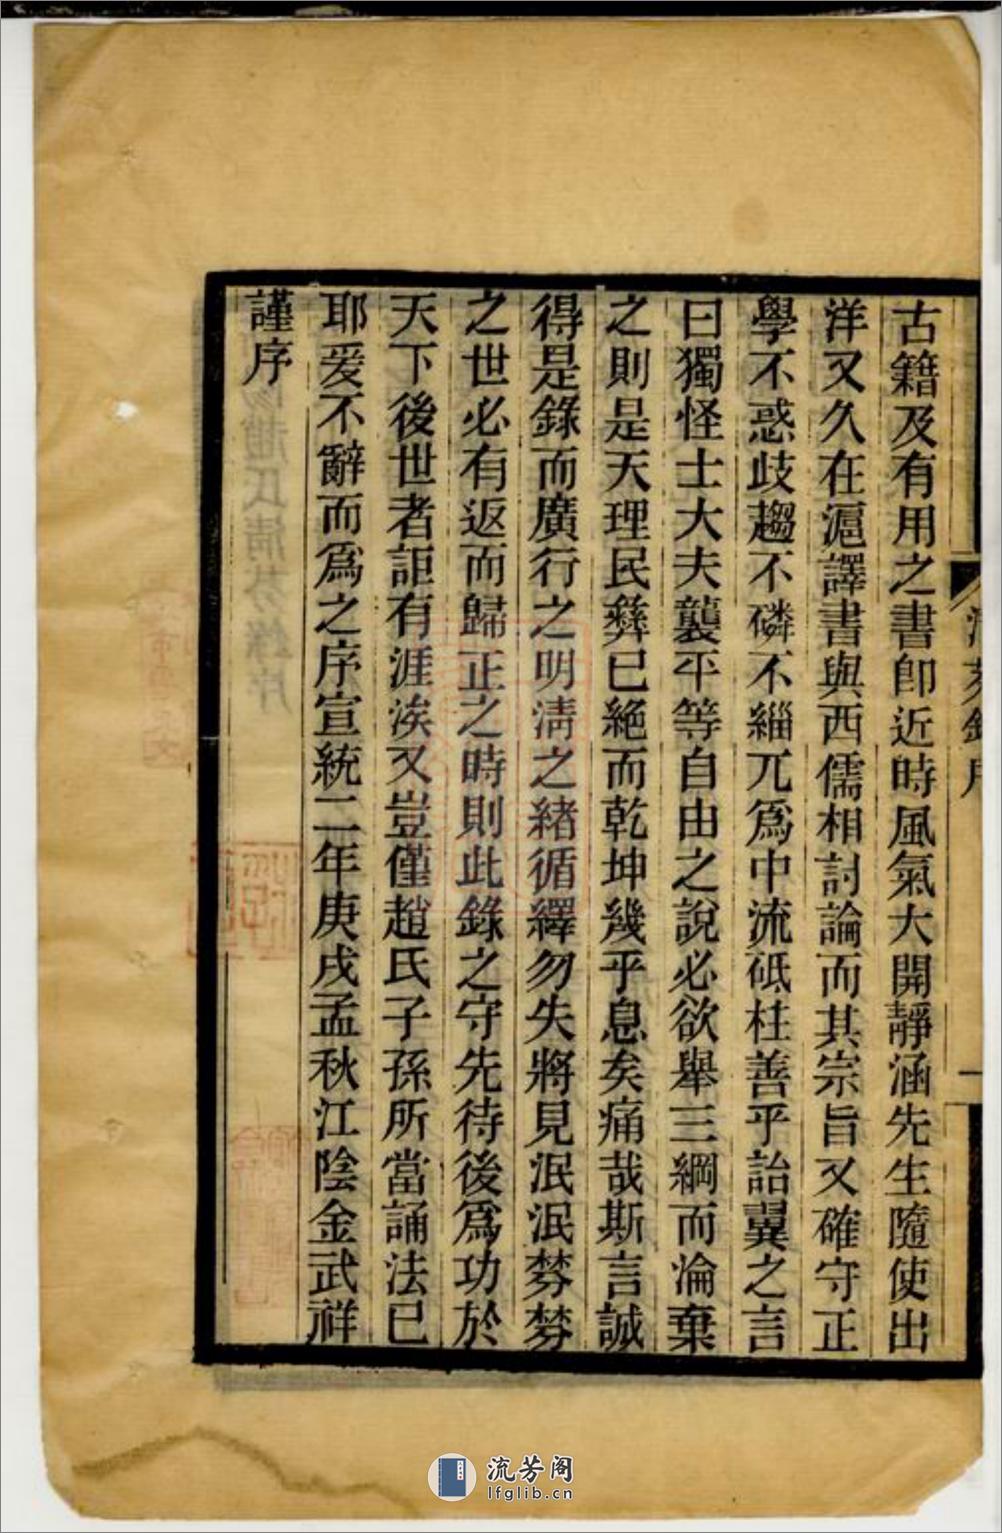 古籍及有用之書卽近時風氣大開靜涵先生隨使出
洋又久在滬譯書與西儒相討論而其宗旨又確守正
學不惑歧趨不磷不緇兀爲中流砥柱善乎詒翼之言
曰獨怪士大夫襲平等自由之說必欲舉三綱而淪棄
之則是天理民彝已絕而乾坤幾乎息矣痛哉斯言誠
得是錄而廣行之明淸之緖循繹勿失將見泯泯棼棼
之世必有返而歸正之時則此錄之守先待後爲功於
天下後世者詎有涯涘又豈僅趙氏子孫所當誦法已
耶爰不辭而爲之序宣統二年庚戌孟秋江陰金武祥
謹序
流芳阁
lfglib.cn